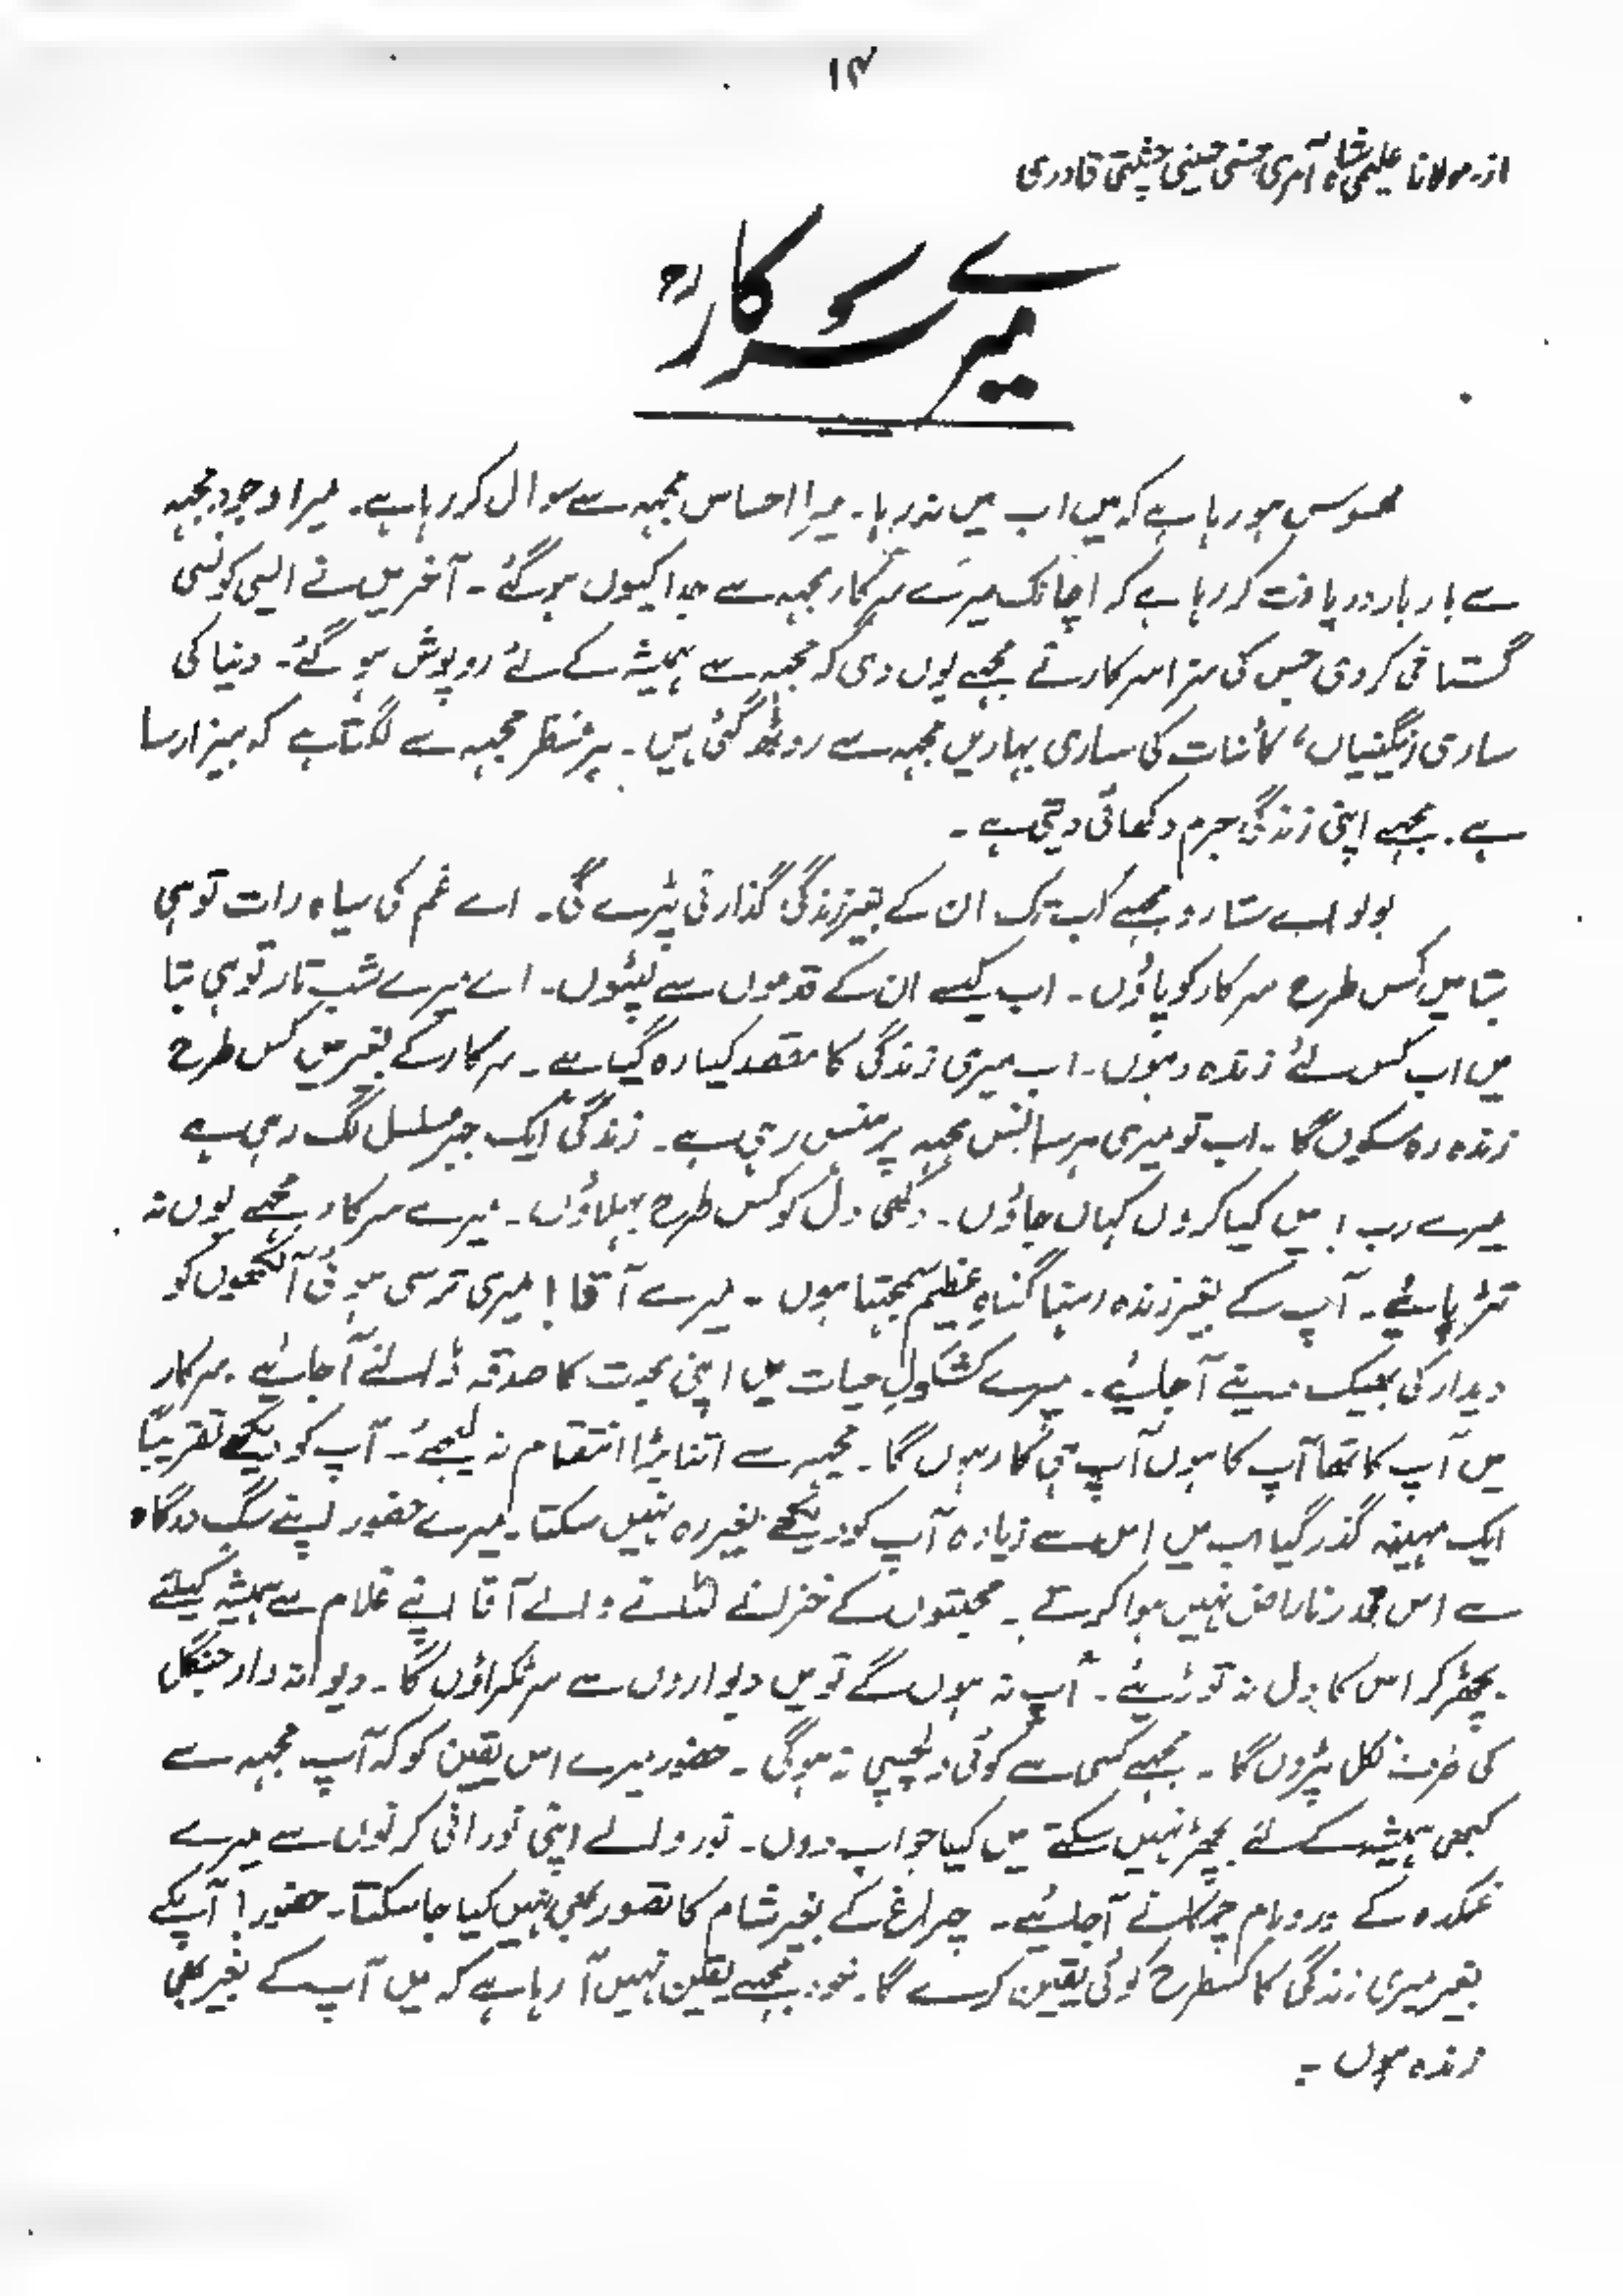 ۱۴
از۔ مولانا علیمی شاہ آمری حسنی حسینی چشتی قادری
میرے سرکارؒ
محسوس ہو رہا ہے کہ میں اب میں نہ رہا۔ میرا احساس مجہہ سے سوال کر رہا ہے۔ میرا وجود مجہہ
سے بار بار دریافت کر رہا ہے کہ اچانک میرے سرکار مجہہ سے جدا کیوں ہو گئے۔ آخر میں نے ایسی کونسی
گستاخی کر دی جس کی سزا سرکار نے مجہے یوں دی کہ مجہہ سے ہمیشہ کے لئے روپوش ہو گئے۔ دنیا کی
ساری رنگینیاں، کائنات کی ساری بہاریں مجہہ سے روٹھ گئی ہیں۔ ہر منظر مجہہ سے لگتا ہے کہ بیزار سا
ہے۔ مجہے اپنی زندگی جرم دکھائی دیتی ہے۔
بولو اے ستارو مجہے کب تک ان کے بغیر زندگی گذارنی پڑے گی۔ اے غم کی سیاہ رات تو ہی
بتا میں کس طرح سرکار کو پاؤں۔ اب کیسے ان کے قدموں سے لپٹوں۔ اے میرے شب تار تو ہی بتا
میں اب کس لئے زندہ رہوں۔ اب میری زندگی کا مقصد کیا رہ گیا ہے۔ سرکار کے بغیر میں کس طرح
زندہ رہ سکوں گا۔ اب تو میری ہر سانس مجہہ پر ہنس رہی ہے۔ زندگی ایک جبر مسلسل لگ رہی ہے
میرے رب! میں کیا کروں کہاں جاؤں۔ دکھی دل کو کس طرح بہلاؤں۔ میرے سرکار مجہے یوں نہ
تڑپائیے۔ آپ کے بغیر زندہ رہنا گناہِ عظیم سمجہتا ہوں۔ میرے آقا! میری ترسی ہوئی آنکھوں کو
دیدار کی بھیک دینے آجائیے۔ میرے کشکولِ حیات میں اپنی محبت کا صدقہ ڈالنے آجائیے۔ سرکار
میں آپ کا تھا آپ کا ہوں آپ ہی کا رہوں گا۔ مجہہ سے اتنا بڑا انتقام نہ لیجئے۔ آپ کو دیکھے تقریباً
ایک مہینہ گذر گیا اب میں اس سے زیادہ آپ کو دیکھے بغیر رہ نہیں سکتا۔ میرے حضور اپنے سگِ درگاہ
سے اس قدر ناراض نہیں ہوا کرتے۔ محبتوں کے خزانے لٹانے والے آقا اپنے غلام سے ہمیشہ کیلئے
بچھڑ کر اس کا دل نہ توڑئیے۔ آپ نہ ہوں گے تو میں دیواروں سے سر ٹکراؤں گا۔ دیوانہ وار جنگل
کی طرف نکل پڑوں گا۔ مجہے کسی سے کوئی دلچسپی نہ ہو گی۔ حضور میرے اس یقین کو کہ آپ مجہہ سے
کبھی ہمیشہ کے لئے بچھڑ نہیں سکتے میں کیا جواب دوں۔ نور والے اپنی نورانی کرنوں سے میرے
غمکدہ کے در و بام چمکانے آجائیے۔ چراغ کے بغیر شام کا تصور بھی نہیں کیا جا سکتا۔ حضور! آپکے
بغیر میری زندگی کا کسطرح کوئی یقین کرے گا۔ خود مجہے یقین نہیں آ رہا ہے کہ میں آپ کے بغیر بھی
زندہ ہوں۔